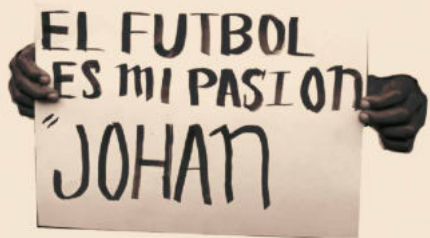 EL FUTBOL
ES MI PASION
"JOHAN